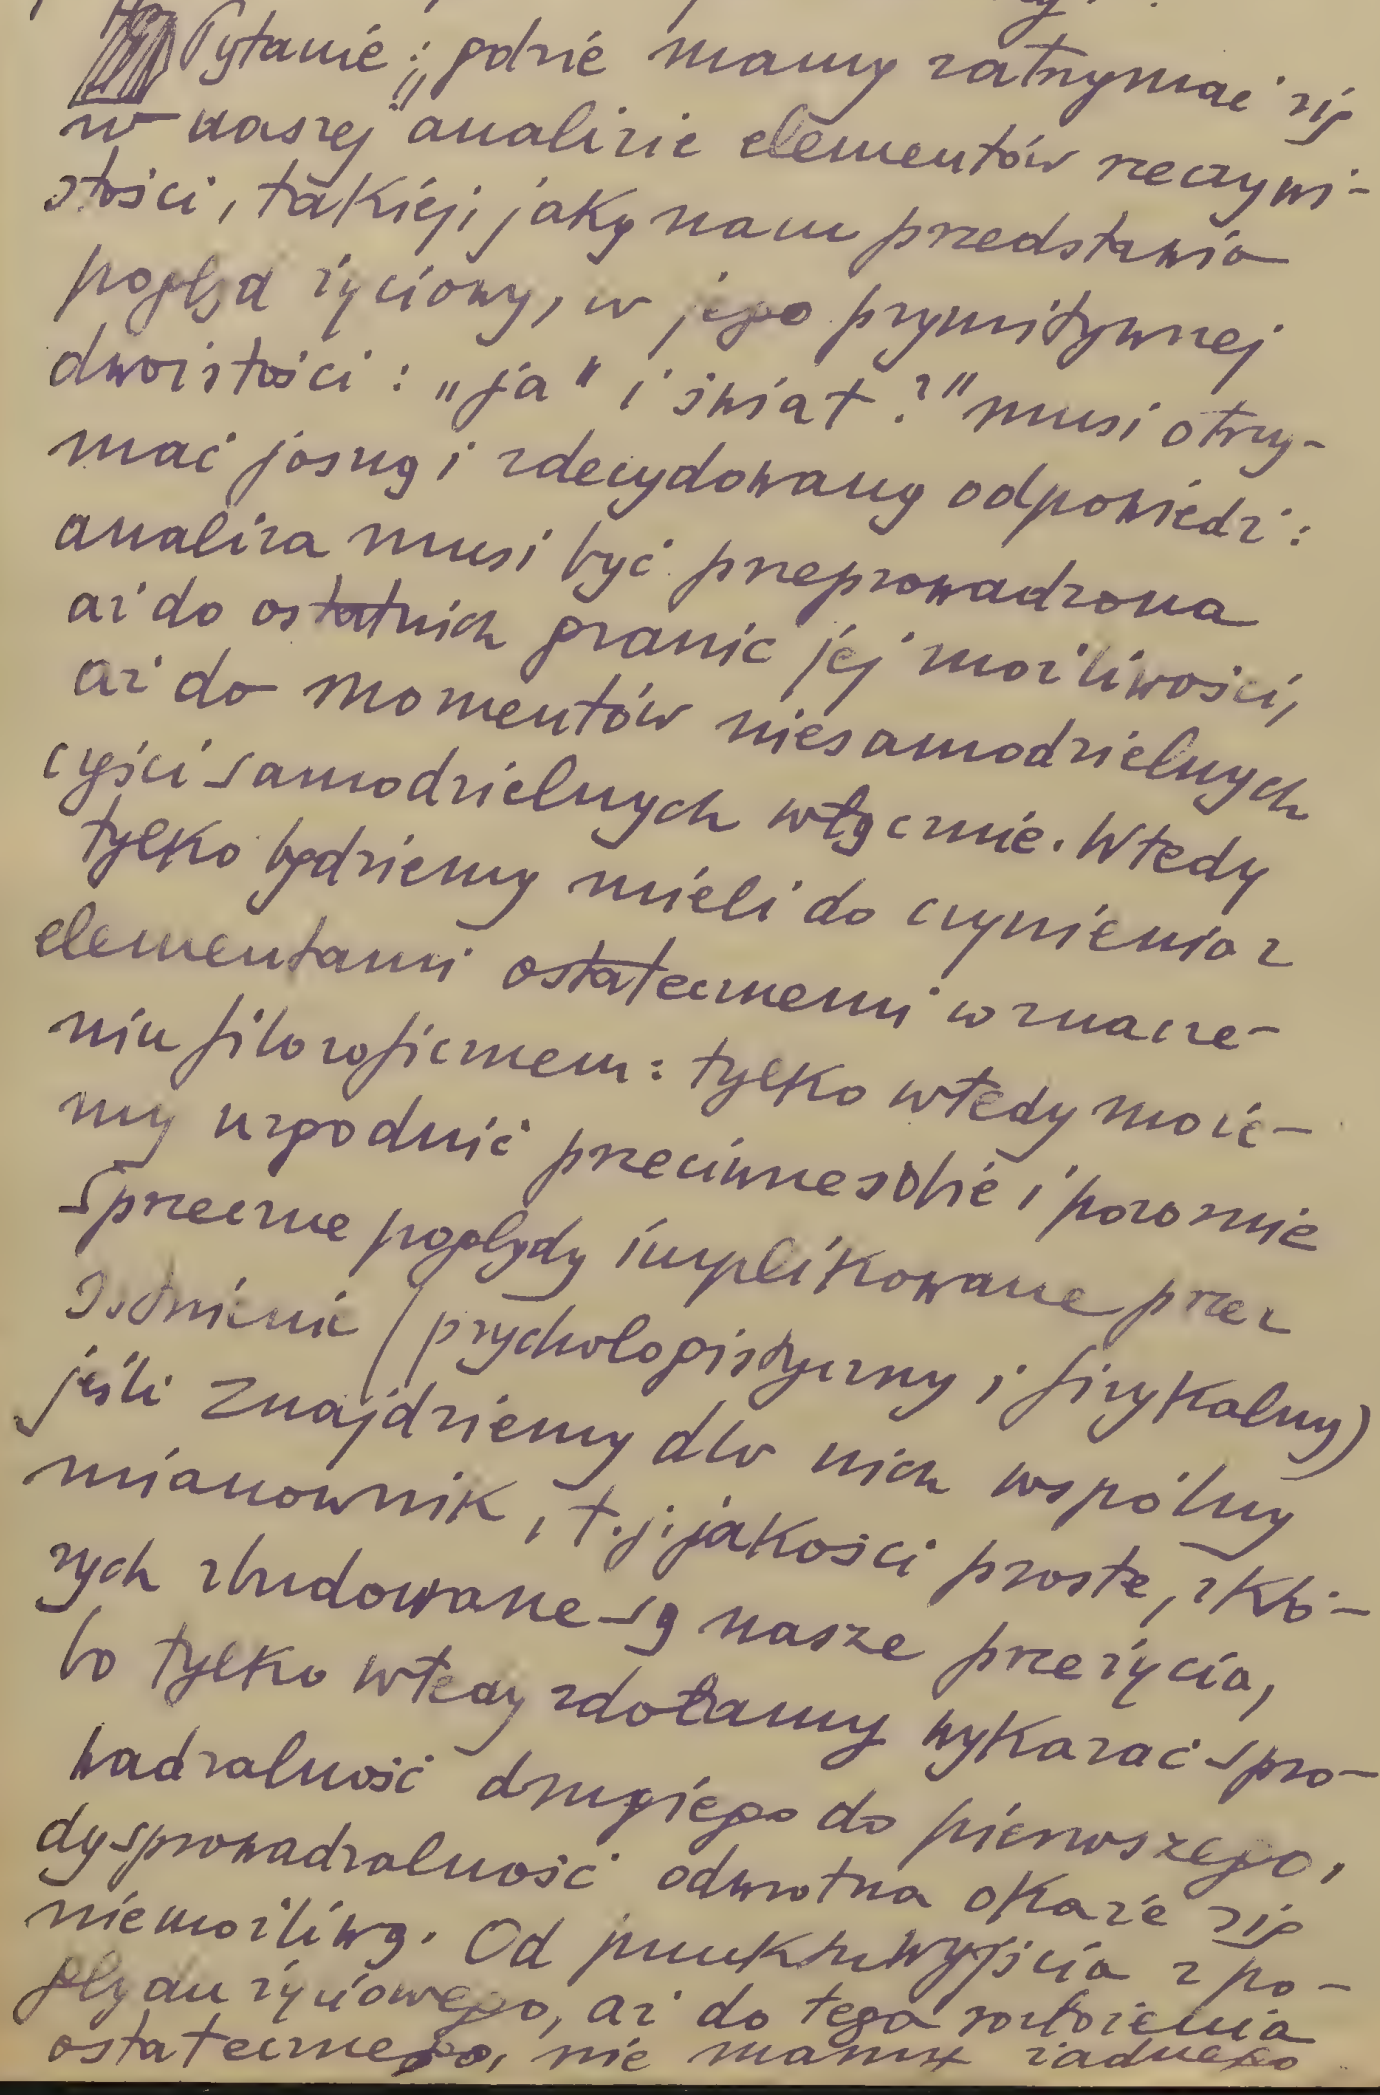 Pytanie: „gdzie mamy zatrzymać się
w naszej analizie elementów rzeczywi-
stości, takiej, jaką nam przedstawia
pogląd życiowy, w jego prymitywnej
dwoistości: „ja" i świat?" musi otrzy-
mać jasną i zdecydowaną odpowiedź:
analiza musi być przeprowadzona
aż do ostatnich granic jej możliwości,
aż do momentów niesamodzielnych
części samodzielnych włącznie. Wtedy
tylko będziemy mieli do czynienia z
elementami ostatecznemi w znacze-
niu filozoficznem: tylko wtedy może-
my uzgodnić przeciwne sobie i pozornie
sprzeczne poglądy implikowane przez
Istnienie (psychologistyczny i fizykalny)
jeśli znajdziemy dla nich wspólny
mianownik, t.j. jakości proste, z któ-
rych zbudowane są nasze przeżycia,
bo tylko wtedy zdołamy wykazać spro-
wadzalność drugiego do pierwszego,
gdy sprowadzalność odwrotna okaże się
niemożliwą. Od punktu wyjścia z po-
glądu życiowego, aż do tego rozłożenia
ostatecznego, nie mamy żadnego